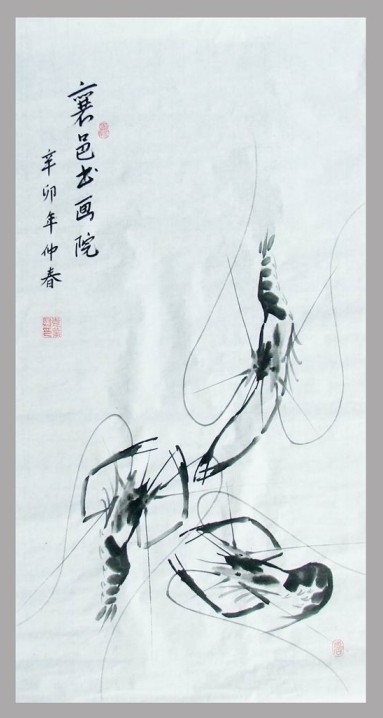 襄邑书画院
辛卯年仲春